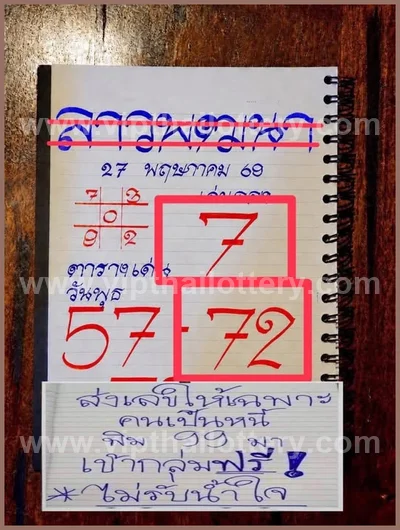 สาวพเนา
27 พฤษภาคม 69
7 3
0
9 2
7
ตารางเด่น
วันพุธ
57 - 72
ส่งเลขให้เฉพาะ
คนเป็นหนี้
พิม 99 มา
เข้ากลุ่มฟรี!
* ไม่รับน้ำใจ
www.vipthailottery.com
www.vipthailottery.com
www.vipthailottery.com